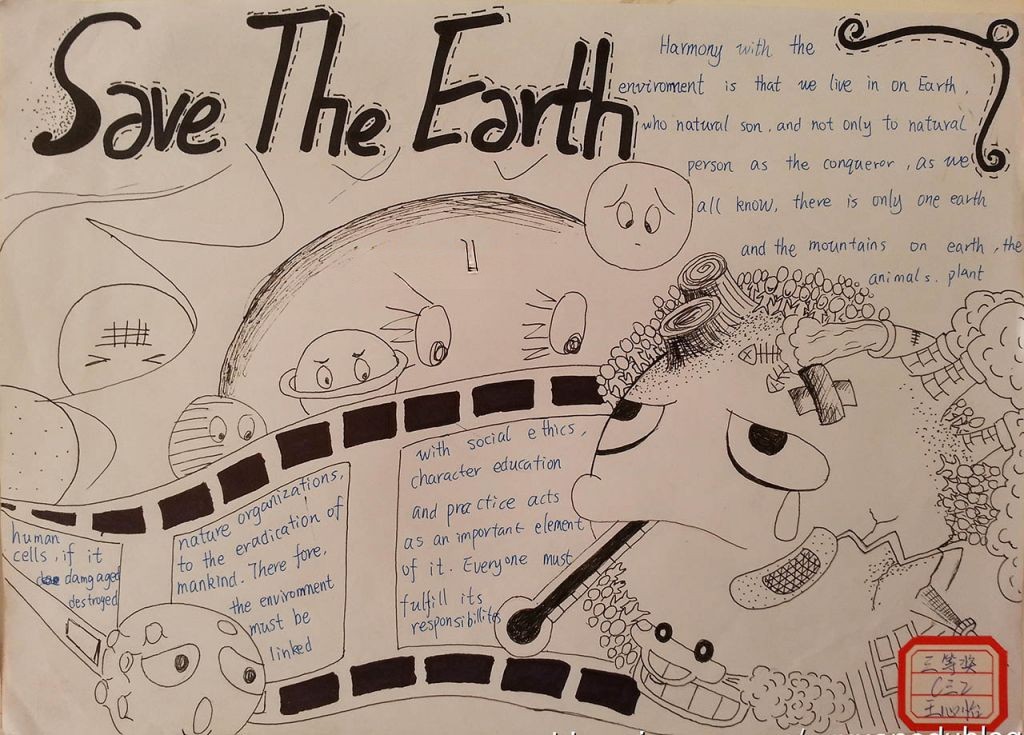 Save The Earth
Harmony with the
enviroment is that we live in on Earth,
who natural son, and not only to natural
person as the conqueror, as we
all know, there is only one earth
and the mountains on earth, the
animals. plant
human
cells, if it
damgaged
destroyed
nature organizations,
to the eradication of
mankind. There fore,
the enviroment
must be
linked
with social ethics,
character education
and practice acts
as an important element
of it. Everyone must
fulfill its
responsibillites
三等奖
C三2
王心怡